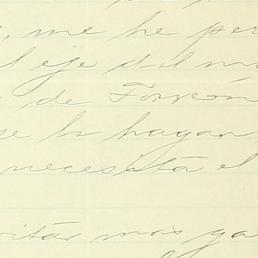 , me he per
l eje del m
de Torreón
se los hagan,
necesita el
itar mas ga